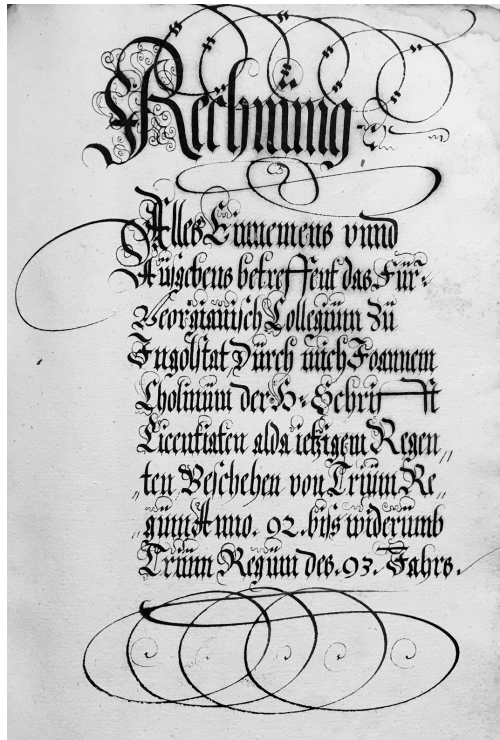 Rechnüng.
Alles Einnemens vnnd
Aüsgebens betreffent das Für=
Georgianisch Collegiüm Zü
Ingolstat Dürch mich Joannem
Cholinüm der H. Schrifft
Licentiaten alda ietzigem Regen,,
,,ten Bescheben von Triüm Re,,
,,güm Anno. 92. biss widerümb
Triüm Regüm des. 93. Jahrs.